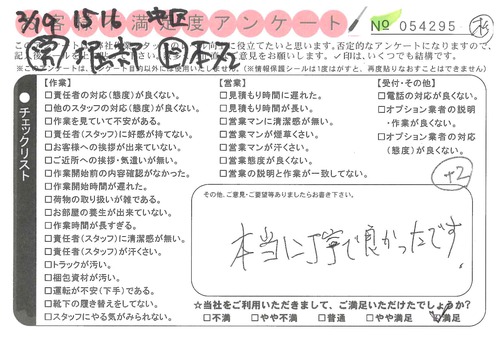 3/19 1516
お客様満足度アンケート
№ 054295
チェックリスト
【作業】
□責任者の対応(態度)が良くない。
□他のスタッフの対応(態度)が良くない。
□作業を見ていて不安がある。
□責任者(スタッフ)に好感が持てない。
□お客様への挨拶が出来ていない。
□ご近所への挨拶・気遣いが無い。
□作業開始前の内容確認がなかった。
□作業開始時間が遅れた。
□荷物の取り扱いが雑である。
□お部屋の養生が出来ていない。
□作業時間が長すぎる。
□責任者(スタッフ)に清潔感が無い。
□責任者(スタッフ)が汗くさい。
□トラックが汚い。
□梱包資材が汚い。
□運転が不安(下手)である。
□靴下の履き替えをしてない。
□スタッフにやる気がみられない。
【営業】
□見積もり時間に遅れた。
□見積もり時間が長い。
□営業マンに清潔感が無い。
□営業マンが煙草くさい。
□営業マンが汗くさい。
□営業態度が良くない。
□営業の説明と作業が一致してない。
【受付・その他】
□電話の対応が良くない。
□オプション業者の説明・作業が良くない。
□オプション業者の対応(態度)が良くない。
+2
その他、ご意見・ご要望等ありましたらお書き下さい。
本当に丁寧で良かったです
☆当社をご利用いただきまして、ご満足いただけたでしょうか?
□不満 □やや不満 □普通 □やや満足 ☑満足